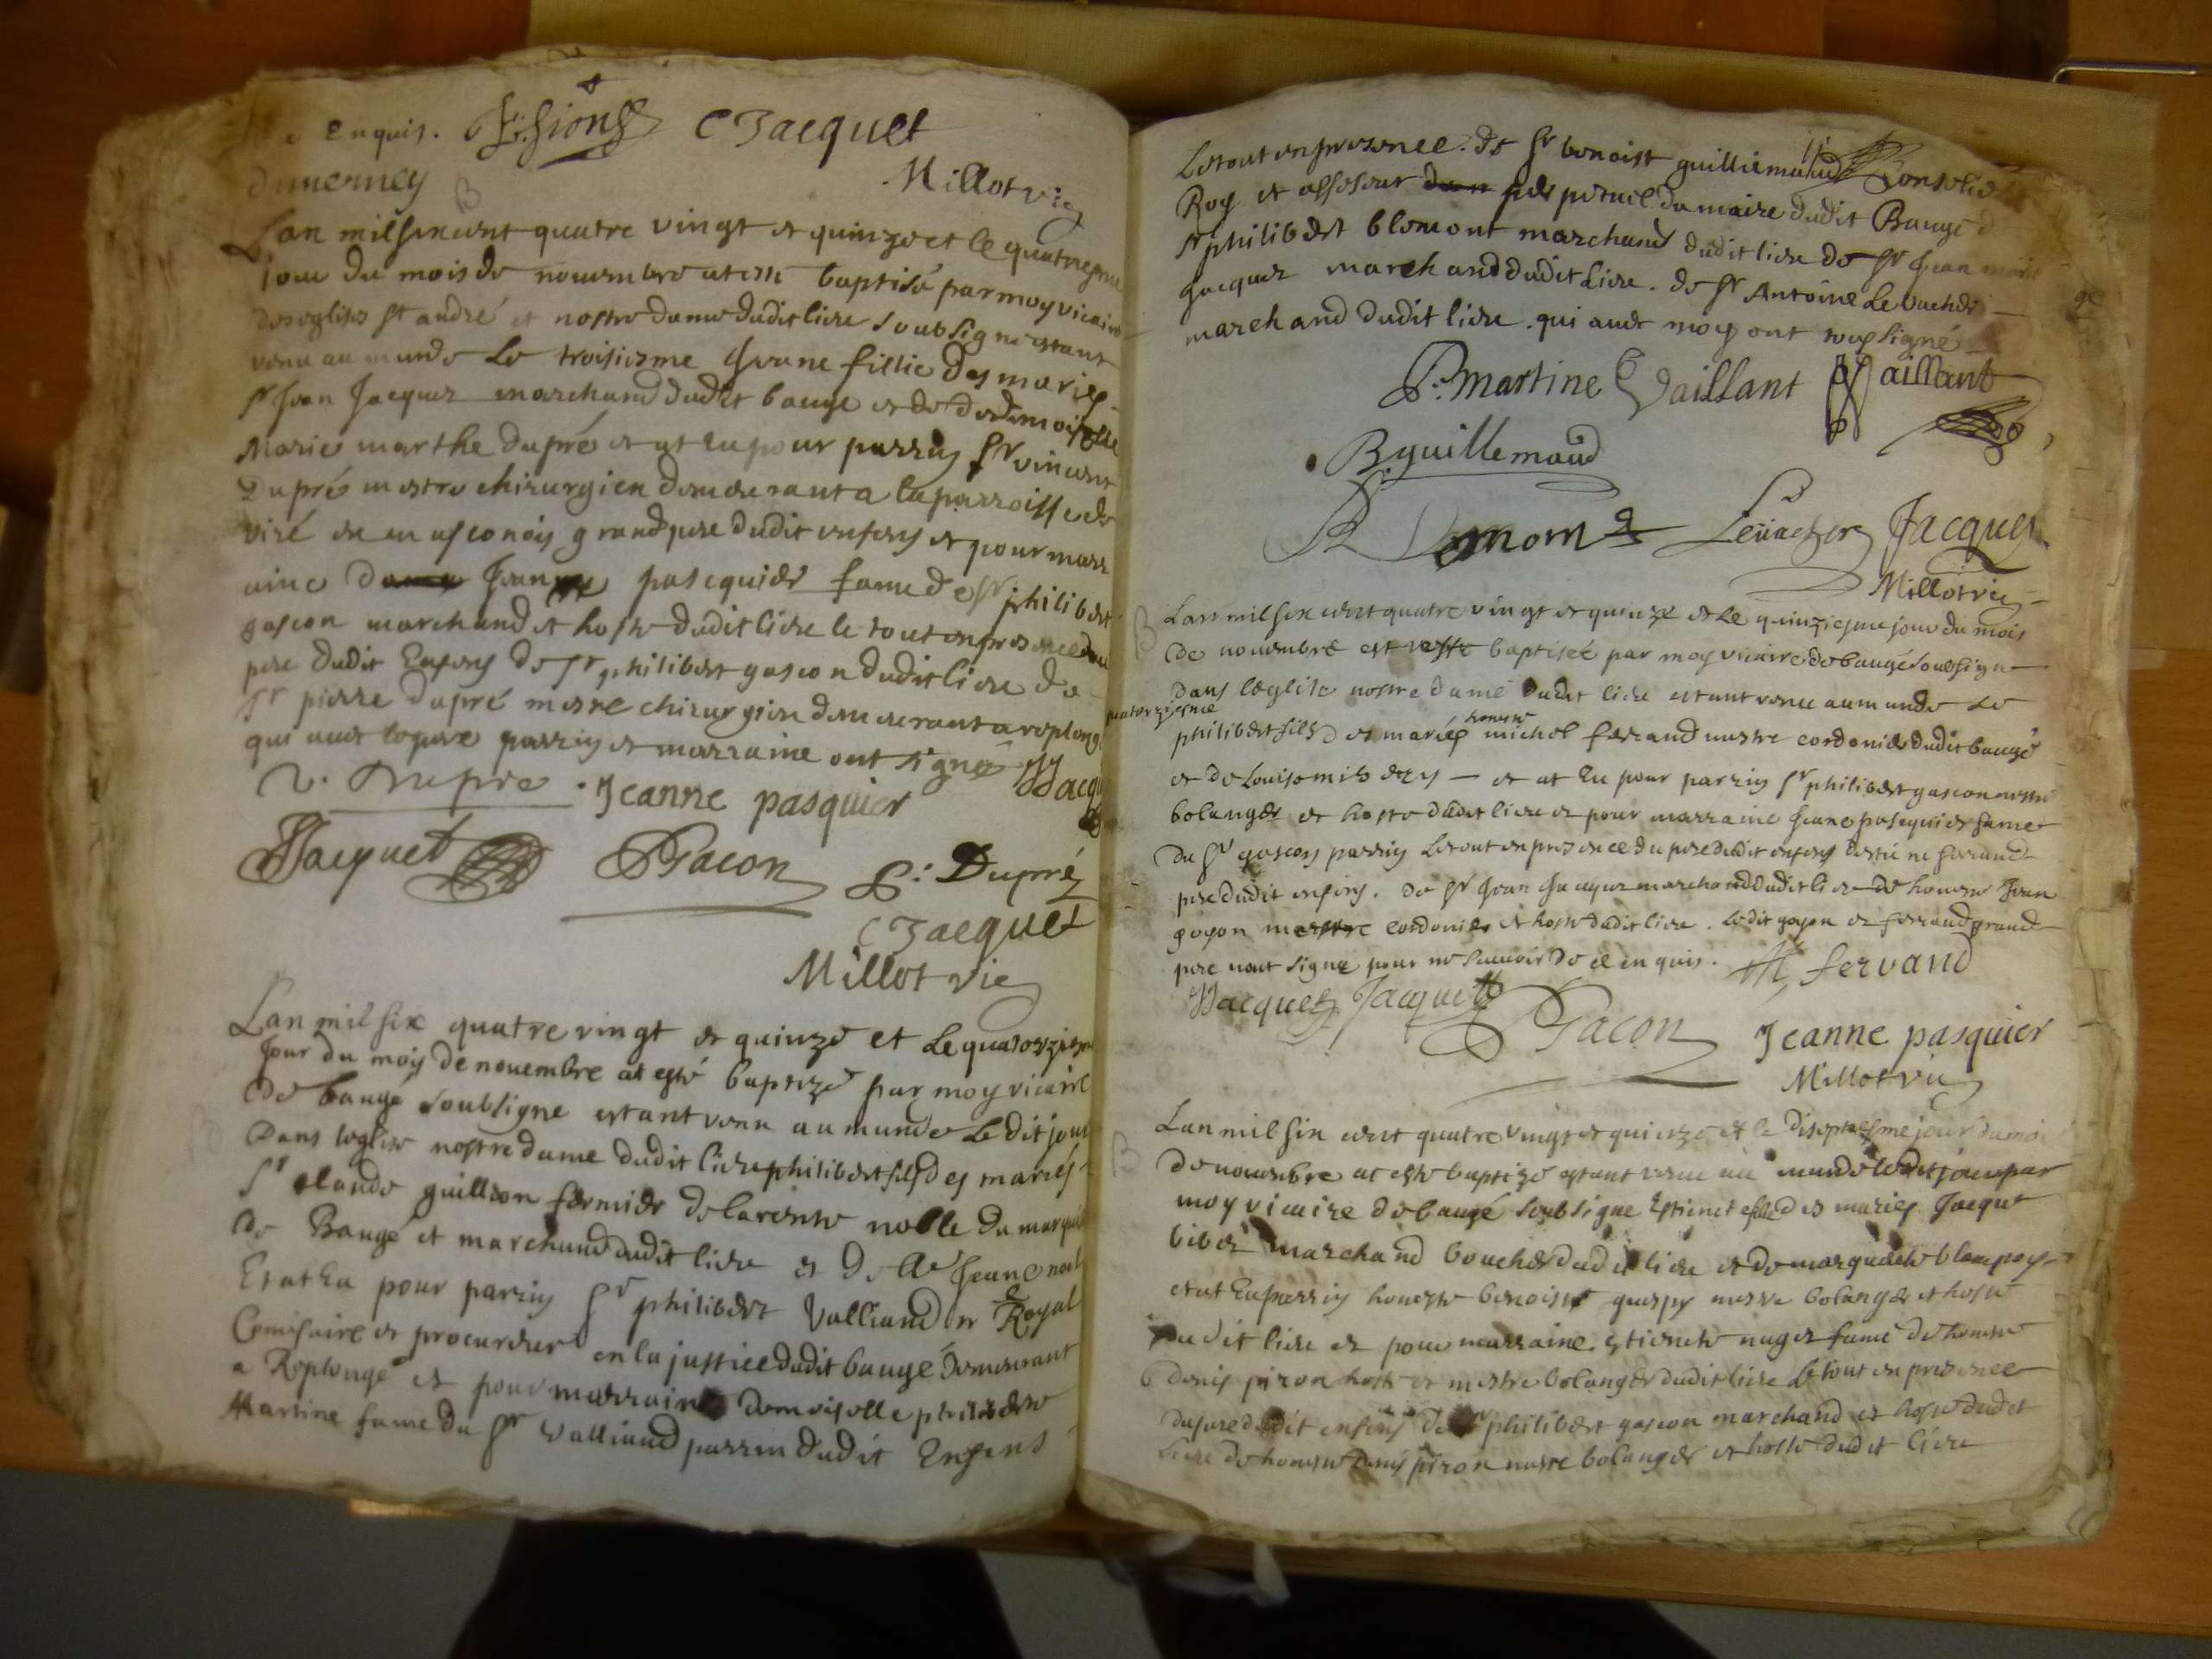 enquis. CJacquet
dumerney Millot vic
Lan mil six cent quatre vingt et quinze et le quatriesme
jour du mois de nouembre at esté baptisé par moy vicaire
des eglises st andré et nostre dame dudit lieu soubsigné estant
venu au monde le troisiesme Jeane fillie des mariés
sr Jean Jacquet marchand dudit baugé et de demoiselle
Marie marthe dupré et at eu pour parrin sr vincent
Dupré mestre chirurgien demeurant a la parroisse de
viré en masconois grand pere dudit enfens et pour marr
aine Jeanne pasequier fame de sr philibert
gascon marchand et hoste dudit lieu le tout en presence du
pere dudit Enfens de sr philibert gascon dudit lieu de
sr pierre dupré mestre chirurgien demeurant a replonge
qui auec le pere parrin et marraine ont signé JJacquet
V. Dupre Jeanne pasquier
JJacquet PGacon P. Dupré
CJacquet
Millot vic
Lan mil six quatre vingt et quinze et le quatorziesme
Jour du moys de nouembre at esté baptizé par moy vicaire
de baugé soubsigne estant venu au monde le dit jour
Dans leglise nostre dame dudit lieu philibert fils des mariés
sr claude guilleon fermier de la rente noble du marquisat
de Baugé et marchand dudit lieu et de dlle Jeane noel
Et at Eu pour parrin sr philibert Valliand nr Royal
Comisaire et procureur en la justice dudit baugé demeurant
a Replonge et pour marraine demoiselle philiberte
Martine fame du sr Valliand parrin dudit Enfens
Le tout en presence. de sr benoist guilliemaud Conselier
Roy et assesseur perpetuel du maire dudit Baugé de
sr philibert blemont marchand dudit lieu de sr Jean
Jacquet marchand dudit Lieu. de sr Antoine Leuacher
marchand dudit lieu. qui auec moy ont tous signé
P. Martine Vaillant Vaillant
B guillemaud
Leuacher Jacquet
Millot vic
Lan mil six cent quatre vingt et quinze et le quinziesme jour du mois
de nouembre est baptisée par moy vicaire de baugé soubsigne
Dans leglise nostre dame dudit lieu estant venu au monde le
quatorziesme
philibert fils des mariés honeste michel ferrand mestre cordonier dudit baugé
et de Louise — et at Eu pour parrin sr philibert gascon mestre
bolanger et hoste dudit lieu et pour marraine Jeane pasequier fame
du sr gascon parrin Le tout en presence du pere dudit enfens ferrand
pere dudit enfens. de sr Jean Jacquet marchand dudit lieu de honeste Jean
goyon mestre cordonier et hoste dudit lieu. ledit goyon et ferrand grand
pere n'ont signé pour ne sauoir de ce enquis. M ferrand
JJacquet Jacquet PGacon Jeanne pasquier
Millot vic
Lan mil six cent quatre vingt et quinze et le diseptiesme jour du mois
de nouembre at esté baptizé estant venu au monde ledit jour par
moy vicaire de baugé soubsigne Estienette fille des mariés Jacque
bibet marchand boucher dudit lieu et de margueritte blampoy
et at Eu parrin honeste benoist guespy mestre bolanger et hoste
dudit lieu et pour marraine. Estienete nuger fame de honeste
denis piron hoste et mestre bolanger dudit lieu Le tout en presence
du pere dudit enfens de sr philibert gascon marchand et hoste dudit
lieu de honeste Denis piron mestre bolanger et hoste dudit lieu